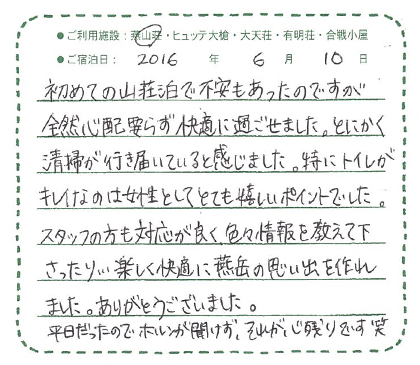 ●ご利用施設：燕山荘・ヒュッテ大槍・大天荘・有明荘・合戦小屋
●ご宿泊日： 2016 年 6 月 10 日
初めての山荘泊で不安もあったのですが
全然心配要らず快適に過ごせました。とにかく
清掃が行き届いていると感じました。特にトイレが
キレイなのは女性としてとても嬉しいポイントでした。
スタッフの方も対応が良く、色々情報を教えて下
さったり…楽しく快適に燕岳の思い出を作れ
ました。ありがとうございました。
平日だったのでホルンが聞けず、それが心残りです笑